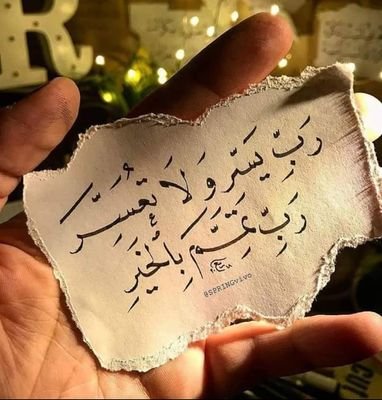 R
رَبِّ يَسِّر وَ لَا تُعَسِّر
رَبِّ تَمِّم بِالْخَيْرِ
@SPRINGVIVO